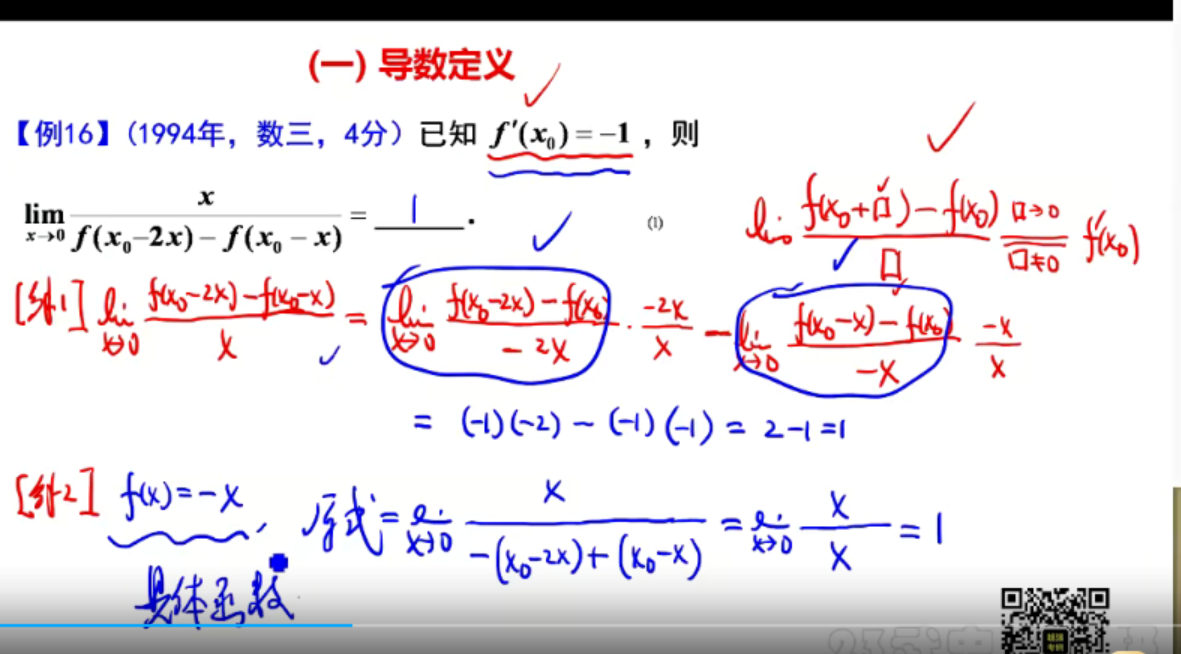 (一) 导数定义
【例16】(1994年，数三，4分) 已知 f′(x₀) = −1 ，则
lim x→0 x / f(x₀−2x) − f(x₀ − x) = 1 .
(1)
lim f(x₀+□) − f(x₀) / □ □→0 □≠0 f′(x₀)
[解1] lim x→0 f(x₀−2x)−f(x₀−x) / x = lim x→0 f(x₀−2x)−f(x₀) / −2x · −2x / x − lim x→0 f(x₀−x)−f(x₀) / −x −x / x
= (−1)(−2) − (−1)(−1) = 2−1=1
[解2] f(x)=−x , 原式= lim x→0 x / −(x₀−2x)+(x₀−x) = lim x→0 x / x = 1
具体函数